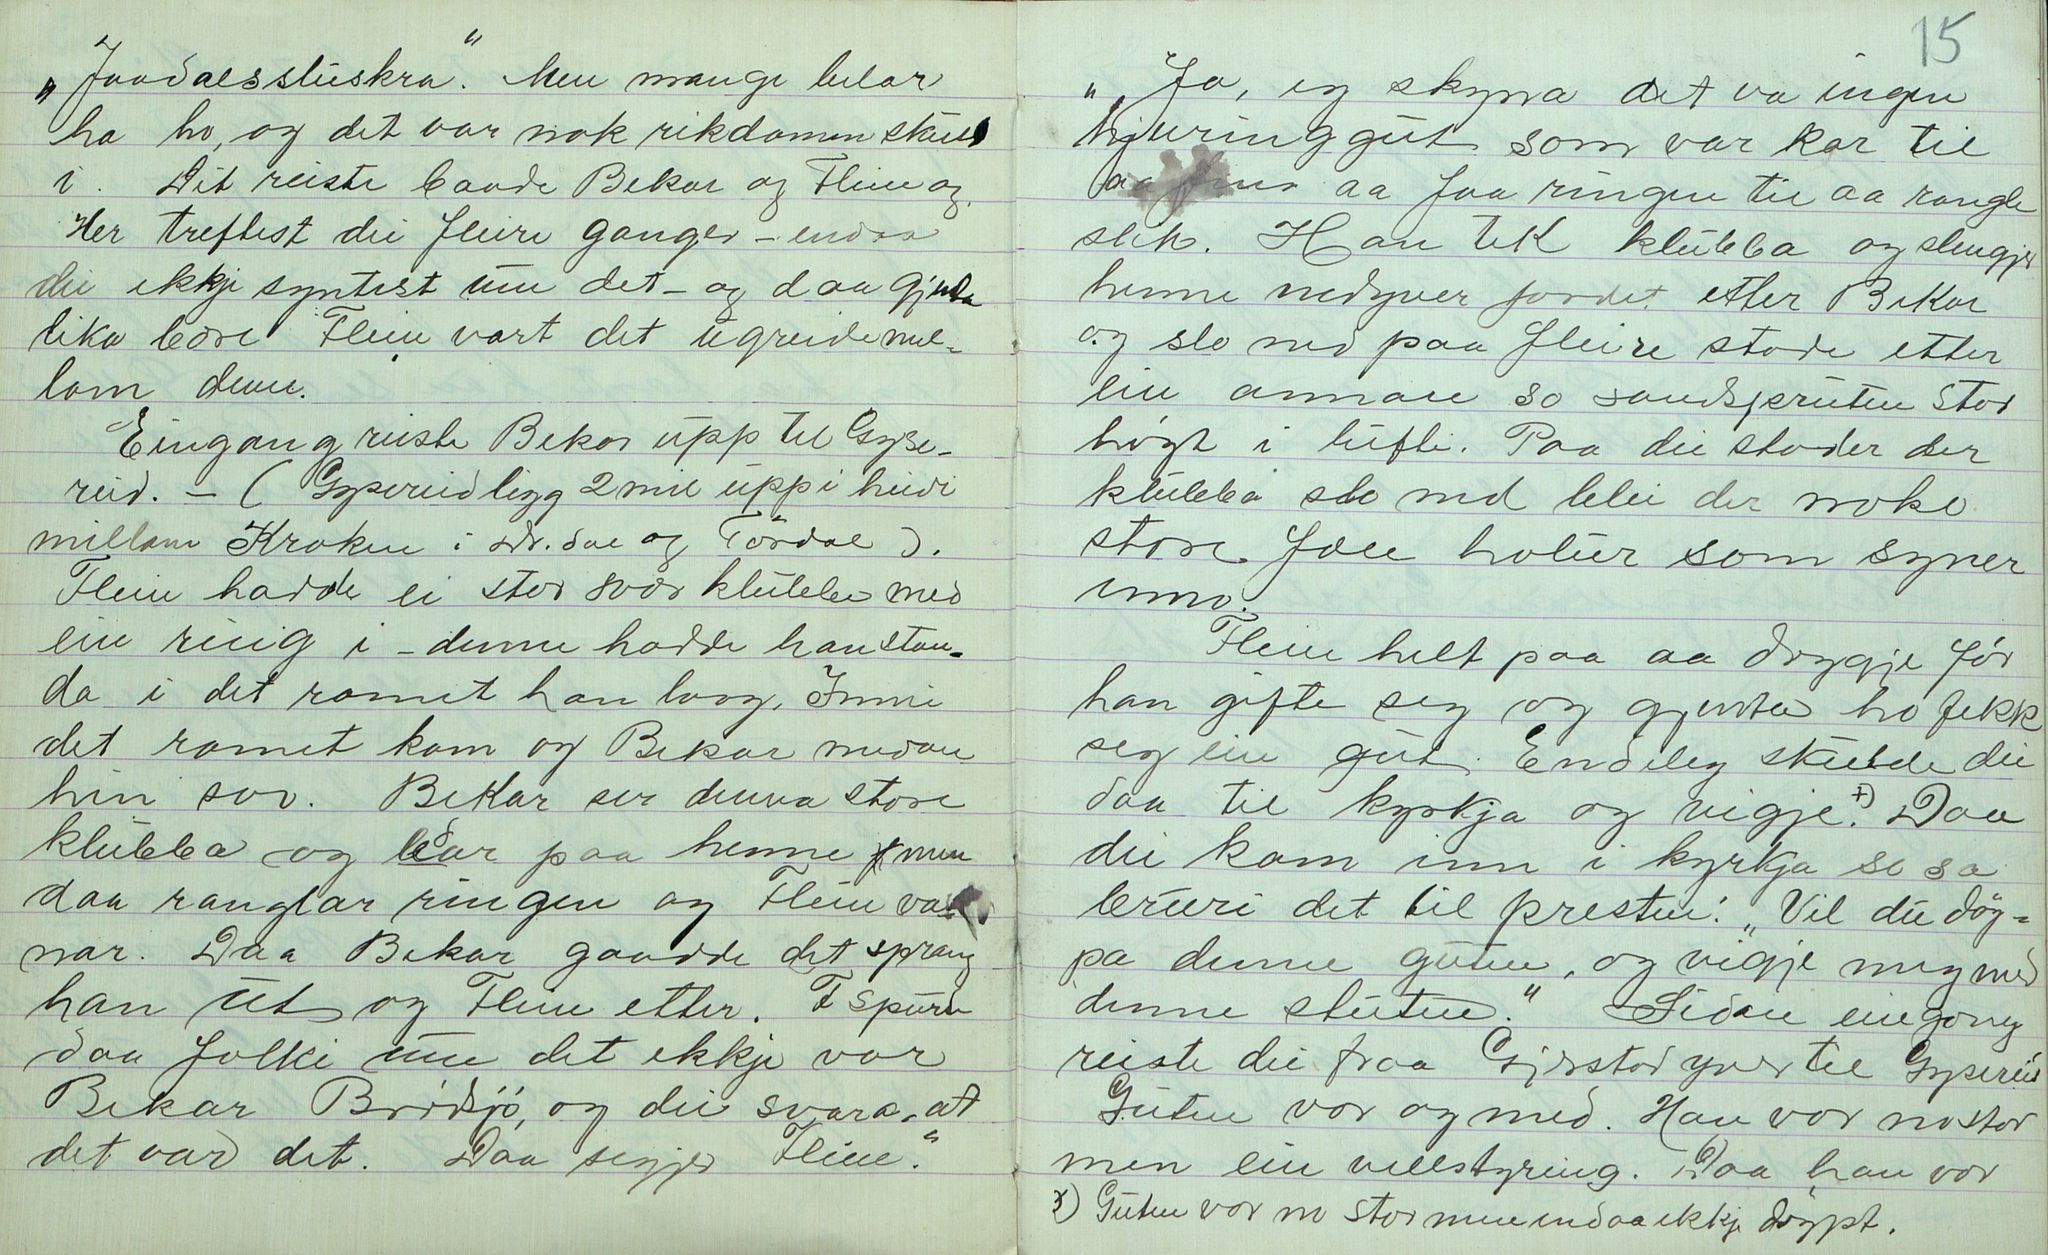 „Jaadalssluskra“. Men mange belar
ha ho, og det var nok rikdomen skuld
i. Dit reiste baade Bekar og Flein og.
Her treftest dei fleire ganger – endaa
dei ikkje syntest um det – og daa gjenta
lika bære Flein vart det ugreide mel-
lom deim.
Eingang reiste Bekar upp til Gyse-
reid. – ( Gysereid ligg 2 mil upp i heidi
millom Kroken i Dr.dal og Tördal ).
Flein hadde ei stor svær klubba med
ein ring i – denne hadde han stan-
da i det romet han laag. Inni
det romet kom og Bekar medan
hin sov. Bekar ser denna store
klubba og dar paa henne men
daa ranglar ringen og Flein vak-
nar. Daa Bekar gaadde det sprang
han ut og Flein etter. F spurde
daa folki um det ikkje var
Bekar Bridsjö, og dei svara, at
det var det. Daa segjer Flein.“
15
„ Ja, eg skyna det va ingen
hjuringgut som var kar til
aa aa faa ringen til aa rangle
slik. Han tek klubba og slengjer
henne nedyver jordet etter Bekar
og slo ned paa fleire stade etter
ein annan so sandspruten stor
högt i lufti. Paa dei stader der
klubba slo ned blei der noko
store holur som syner
enno.
Flein helt paa aa drygje för
han gifte seg og gjenta ho fekk
seg ein gut. Endeleg skulde dei
daa til kyrkja og vigje. x) Daa
dei kom inn i kyrkja so sa
bruri det til presten: „Vil du döy-
pa denne guten, og vigje meg med
denne stuten.“ Sidan eingong
reiste dei fraa Gjerstad yver til Gysereid
Guten var og med. Han var no stor
men ein villstyring. Daa han var
x) Guten var no stor men endaa ikkje döypt.